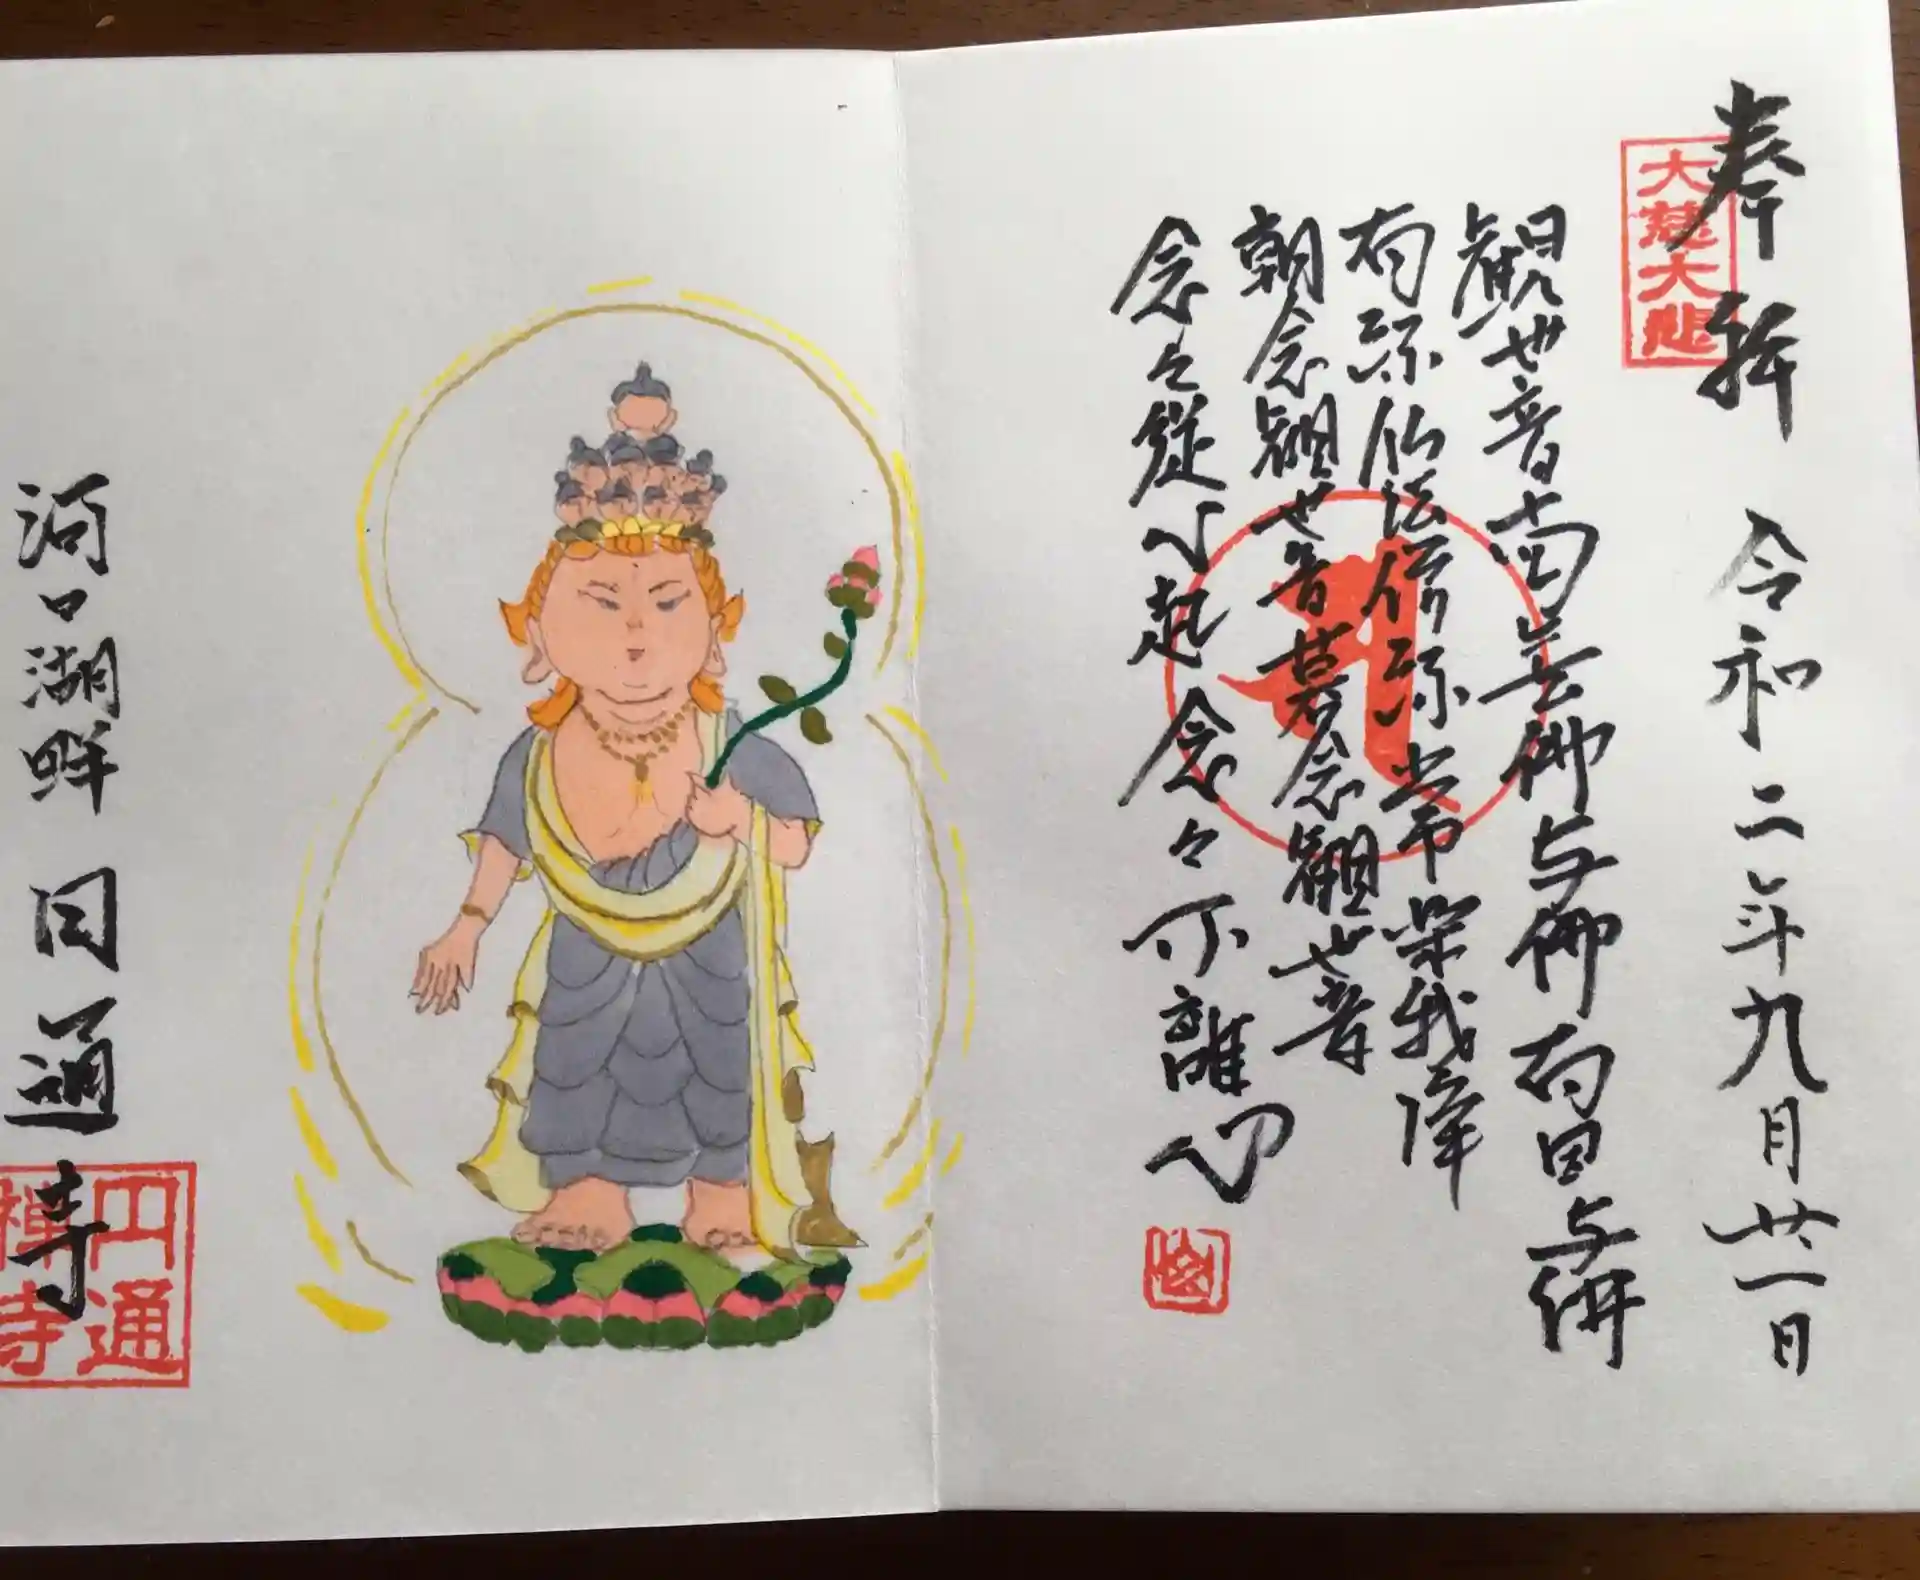 奉拝 令和二年九月廿一日
大慈大悲
観世音南無佛与佛有因与佛
有縁仏法僧縁常楽我浄
朝念観世音暮念観世音
念々従心起念々不離心
河口湖畔 円通寺
円通
禅寺